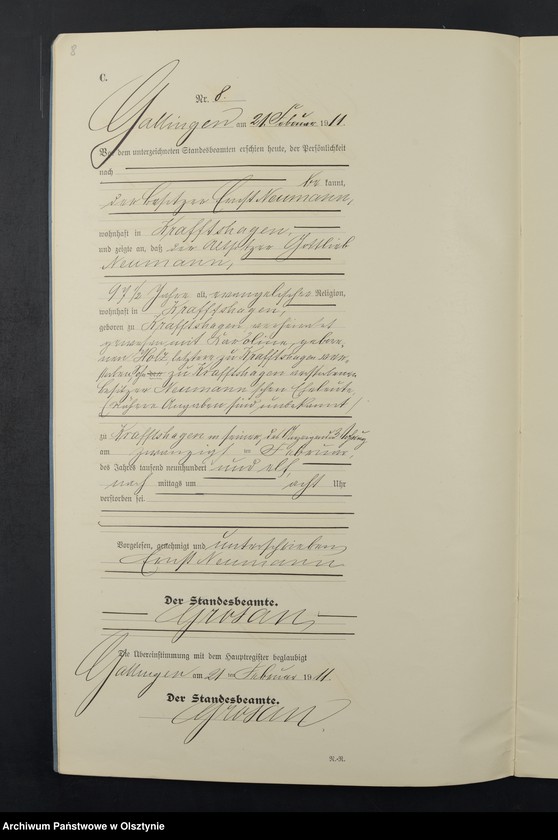 8
C.
Nr. 8.
Gallingen am 21. Februar 1911.
Vor dem unterzeichneten Standesbeamten erschien heute, der Persönlichkeit
nach
be kannt,
der Besitzer Ernst Neumann,
wohnhaft in Krafftshagen,
und zeigte an, daß der Altsitzer Gottlieb
Neumann,
97 1/2 Jahre alt, evangelischer Religion,
wohnhaft in Krafftshagen,
geboren zu Krafftshagen verheiratet
gewesen mit Karoline, gebore-
nen Holz letztere zu Krafftshagen
zu Krafftshagen verstorbenen
Besitzer Neumann'schen Eheleute,
(nähere Angaben sind unbekannt)
zu Krafftshagen in seiner, des Wohnung
am zwanzigsten Februar,
des Jahres tausend neunhundert und elf,
nach mittags um acht Uhr
verstorben sei.
Vorgelesen, genehmigt und unterschrieben
Ernst Neumann
Der Standesbeamte.
Grosan
Die Übereinstimmung mit dem Hauptregister beglaubigt
Gallingen am 21. Februar 1911.
Der Standesbeamte.
Grosan
R.-R.
Archiwum Państwowe w Olsztynie